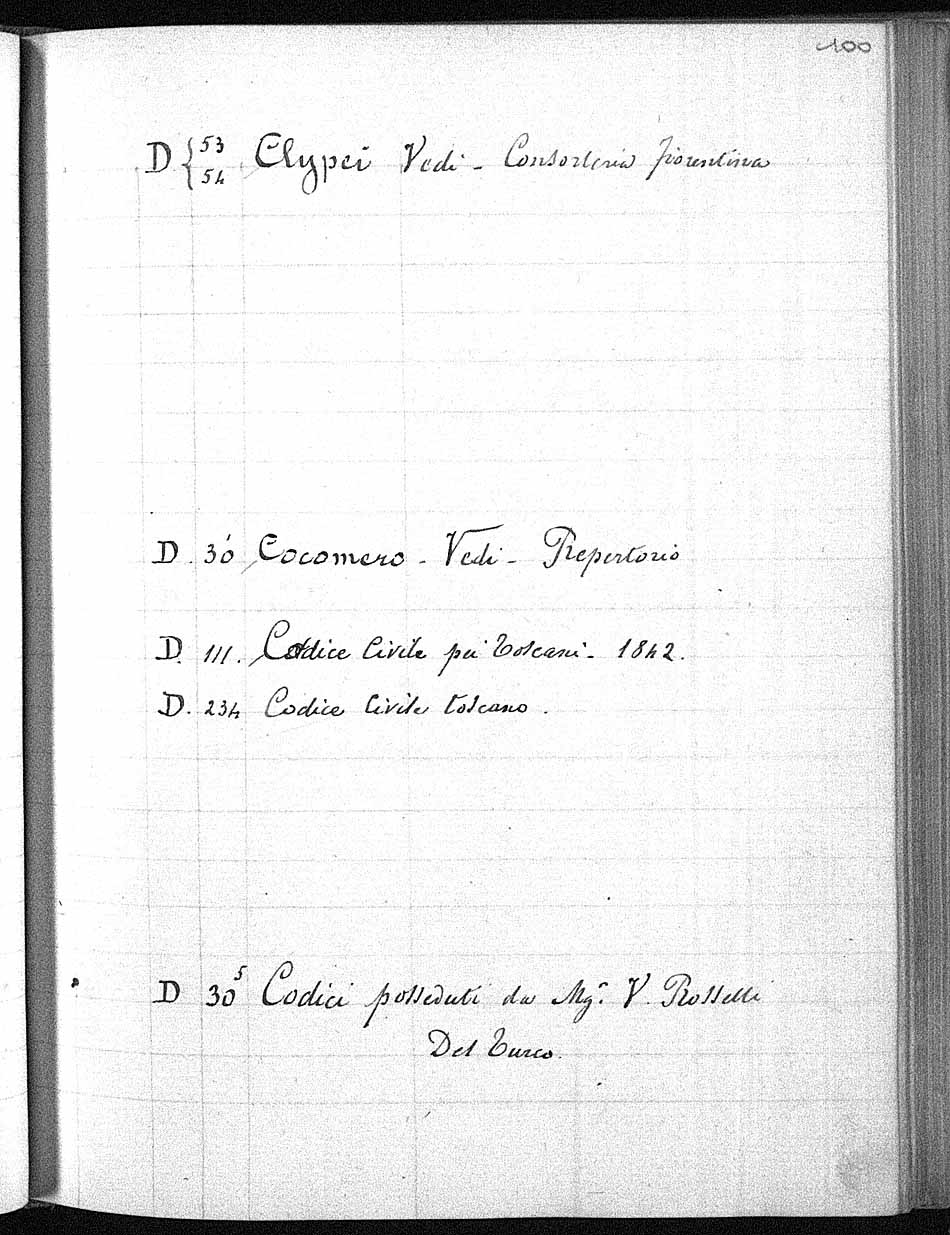 100
D { 53 54 Clypei Vedi - Consorteria fiorentina
D. 30 Cocomero - Vedi - Repertorio
D. 111. Codice Civile pei Toscani - 1842.
D. 234 Codice Civile toscano.
D 30⁵ Codici posseduti da Mgr. V. Rosselli
Del Turco.